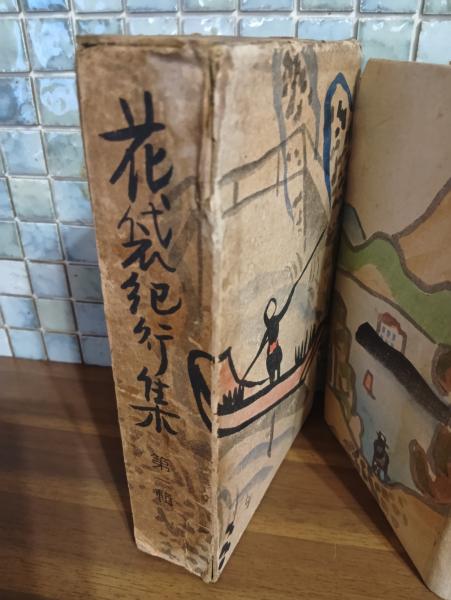 花袋紀行集
第二輯